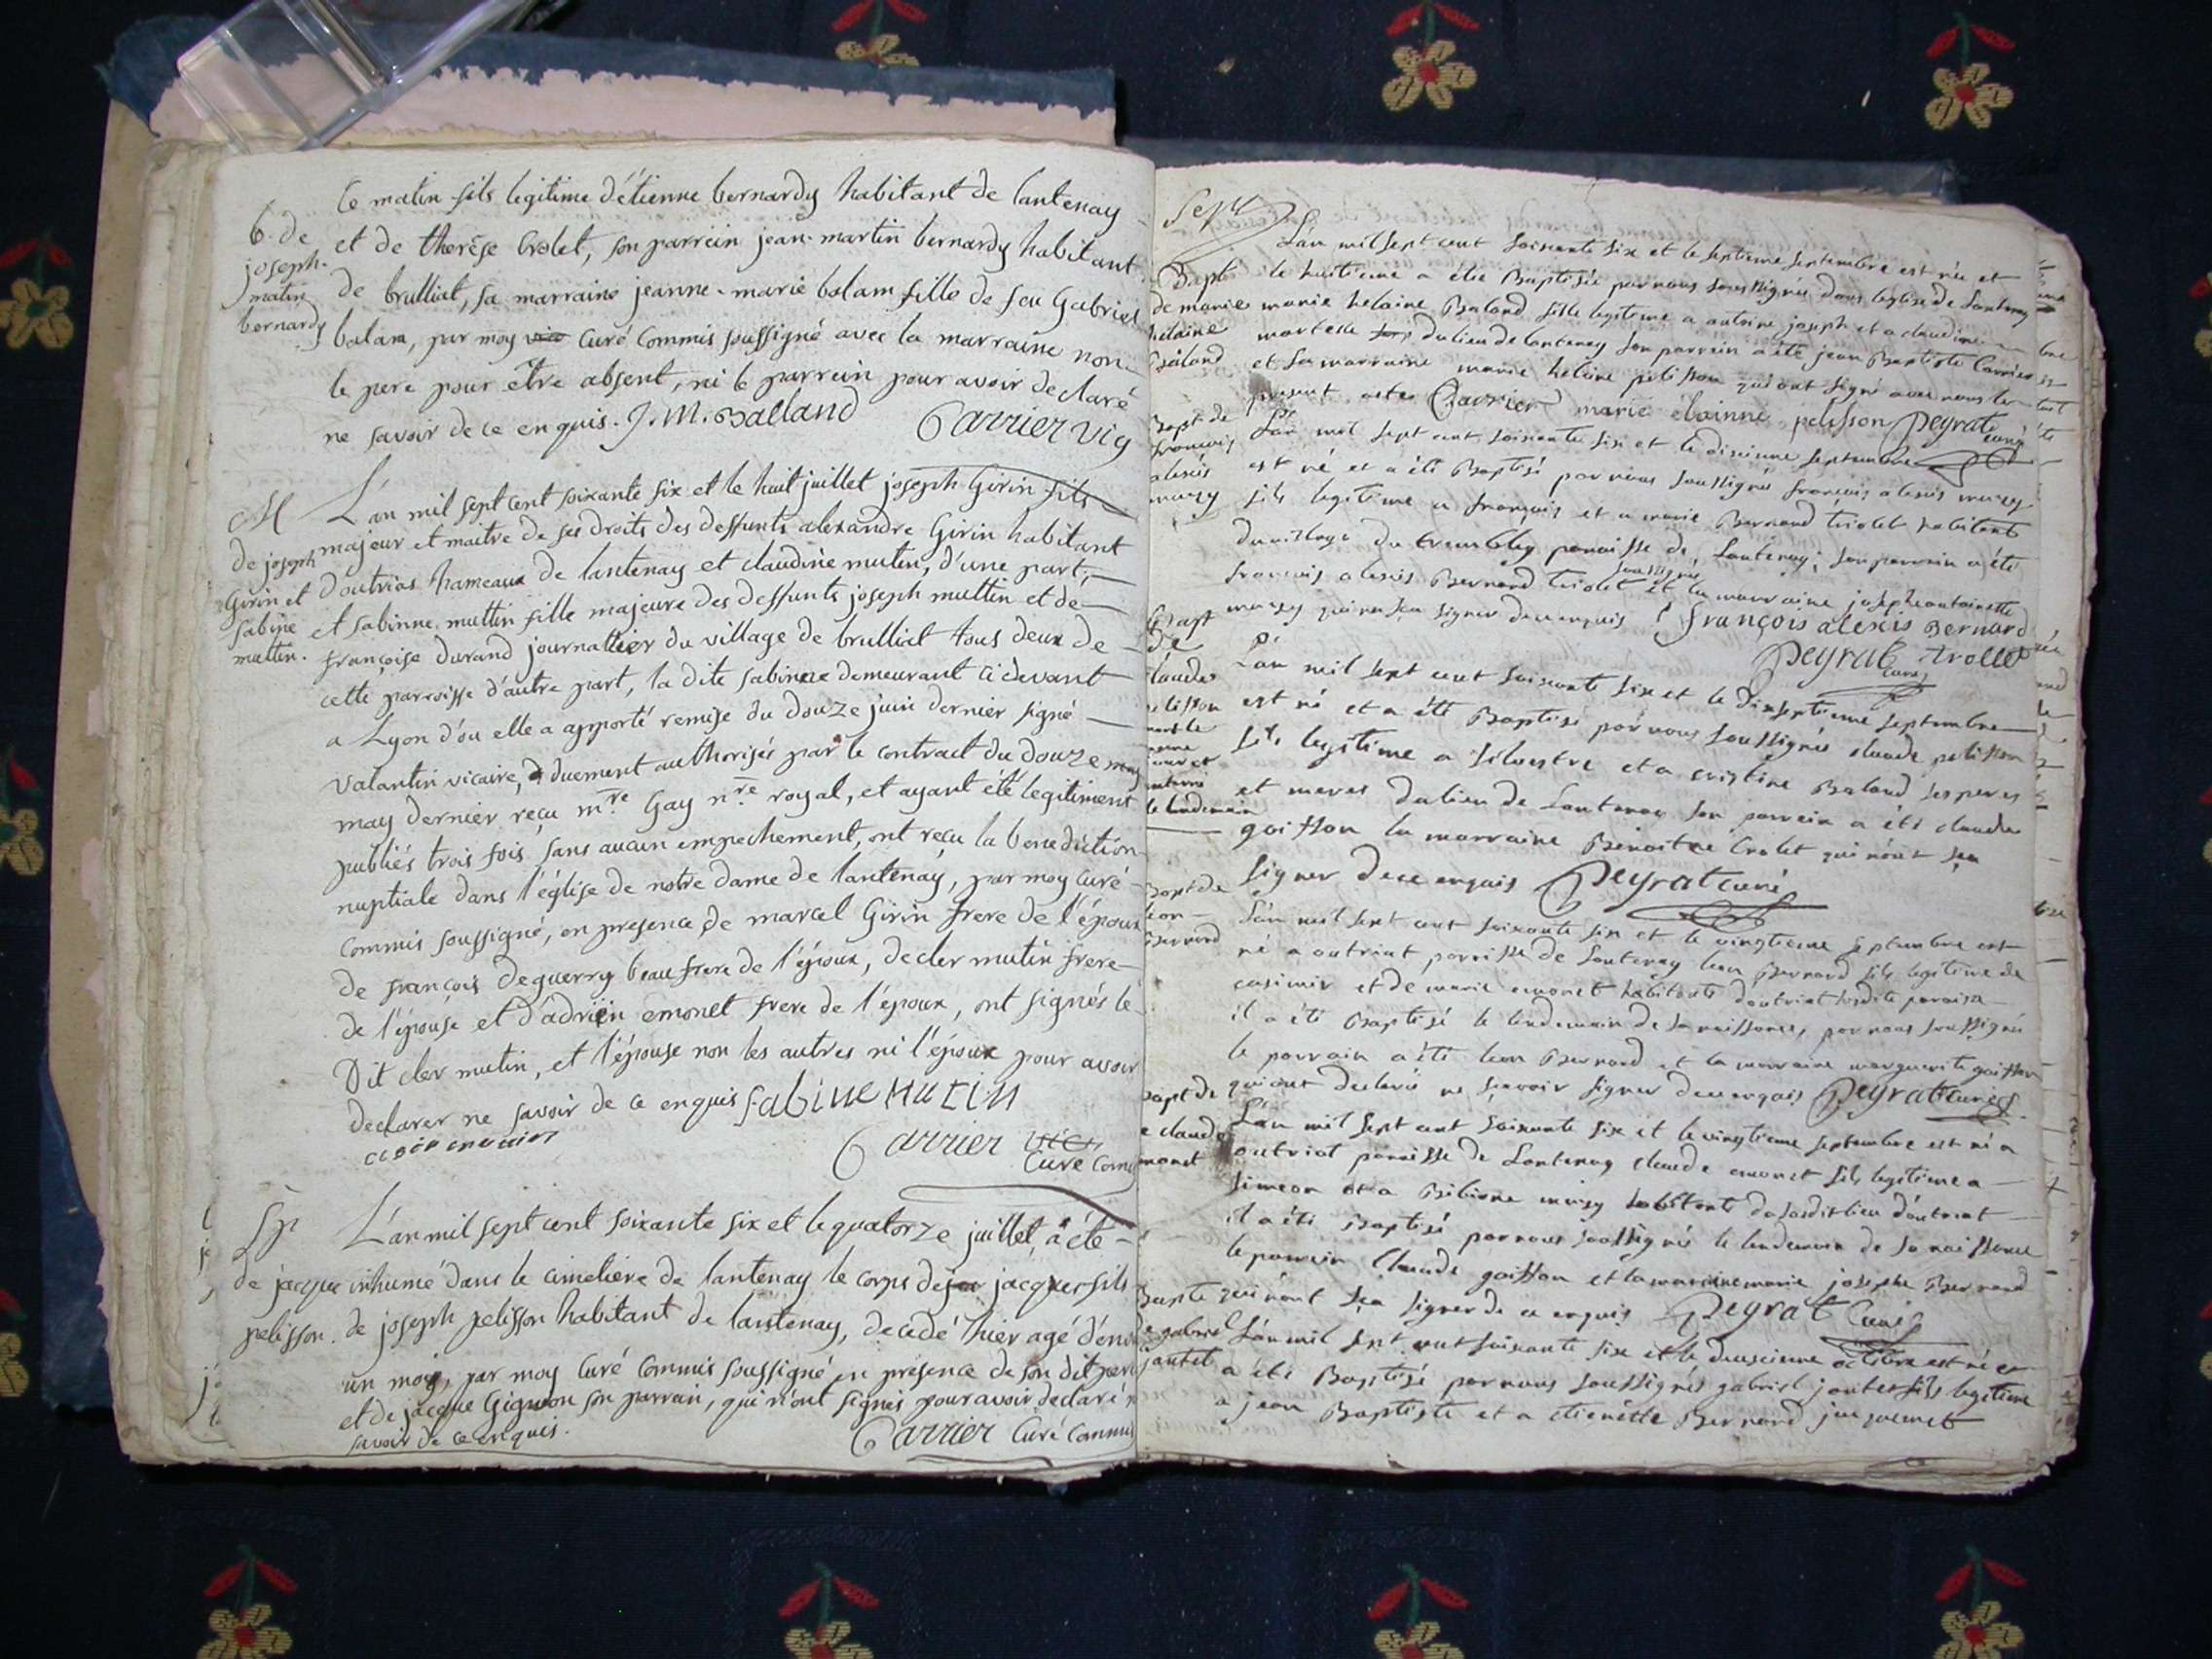 le matin fils legitime d'étienne bernardy habitant de lantenay
b. de joseph matin bernardy
et de therèse Crolet, son parrein jean-martin bernardy habitant
de brulliat, sa marraine jeanne-marie balam fille de feu Gabriel
balam, par moy vic curé Commis soussigné avec la marraine non
le pere pour être absent, ni le parrein pour avoir declaré
ne savoir de ce enquis. J. M. Balland Carrier vic
M de joseph Girin et sabine muttin.
L'an mil sept cent soixante six et le huit juillet joseph Girin fils
majeur et maitre de ses droits des deffunts alexandre Girin habitant
d'outrias hameaux de lantenay et claudine mutin, d'une part,
et sabinne muttin fille majeure des deffunts joseph muttin et de
françoise durand journallier du village de brulliat tous deux de
cette parroisse d'autre part, la dite sabinne demeurant ci devant
a Lyon d'ou elle a apporté remise du douze juin dernier signé
valantin vicaire, duement authorisés par le contract du douze may
may dernier reçu mre Gay nre royal, et ayant été legitiment
publiés trois fois sans aucun empechement, ont reçu la benediction
nuptiale dans l'église de notre dame de lantenay, par moy curé
Commis soussigné, en presence de marcel Girin frere de l'époux
de françois deguerry beau frere de l'époux, de cler mutin frere
de l'épouse et d'adrien emonet frere de l'époux, ont signés le
Dit cler mutin, et l'épouse non les autres ni l'époux pour avoir
declarer ne savoir de ce enquis Sabine Mutin
Carrier vic
Curé Com
Sp de jacque pelisson.
L'an mil sept cent soixante six et le quatorze juillet, a été
inhumé dans le cimetiére de lantenay le corps de jacques fils
de joseph pelisson habitant de lantenay, decedé hier agé d'env
un moy, par moy Curé Commis soussigné en présence de son dit pere
et de jacque Gignon son parrain, qui n'ont signés pour avoir declaré n
savoir de ce enquis. Carrier Curé Commis
Sept
Bapt de marie helaine Baland
L'an mil sept cent soixante six et le septieme septembre est née et
le huitieme a étée Baptisée par nous soussignés dans leglise de Lantenay
marie helaine Baland fille legitime a antoine joseph et a claudine
martelle du lieu de lantenay son parrein a été jean Baptiste Carrier
et sa marraine marie heleine pelisson qui ont signé avec nous le
present acte Carrier marie élainne pelisson Peyrat curé
Bapt de françois alexis murzy
L'an mil sept cent soixante six et le dixieme septembre
est né et a été Baptisé par nous soussignés françois alexis murzy
fils legitime a françois et a marie Bernard triolet habitants
du village du tremblay paroisse de Lantenay; son parrein a été
françois alexis Bernard triolet soussigné et la marraine josephe antoinette
murzy qui na sçu signer de ce enquis françois alexis Bernard
Peyrat curé trollet
Bapt de Claude pelisson
le lendemain
L'an mil sept cent soixante six et le dixseptieme septembre
est né et a été Baptisé par nous soussignés claude pelisson
fils legitime a silvestre et a cristine Baland ses peres
et meres du lieu de Lantenay son parrein a été claude
goisson la marraine Benoitte Crolet qui n'ont sçu
signer de ce enquis Peyrat curé
Bapt de leon Bernard
L'an mil sept cent soixante six et le vingtieme septembre est
né a outriat paroisse de Lantenay leon Bernard fils legitime de
casimir et de marie emonet habitants d'outriat susdite paroisse
il a été Baptisé le lendemain de sa naissance, par nous soussigné
le parrein a été leon Bernard et la marraine marguerite goisson
qui ont declaré ne sçavoir signer de ce enquis Peyrat curé
Bapt de claude emonet
L'an mil sept cent soixante six et le vingtieme septembre est né a
outriat paroisse de Lantenay claude emonet fils legitime a
simeon et a Bibiane murzy habitants du susdit lieu d'outriat
il a été Baptisé par nous soussigné le lendemain de sa naissance
le parrein Claude goisson et la marraine marie josephe Bernard
qui n'ont sçu signer de ce enquis Peyrat Curé
Bapte de gabriel jantet
L'an mil sept cent soixante six et le deuxieme octobre est né et
a été Baptisé par nous soussignés gabriel jantet fils legitime
a jean Baptiste et a étienette Bernard jacquemet